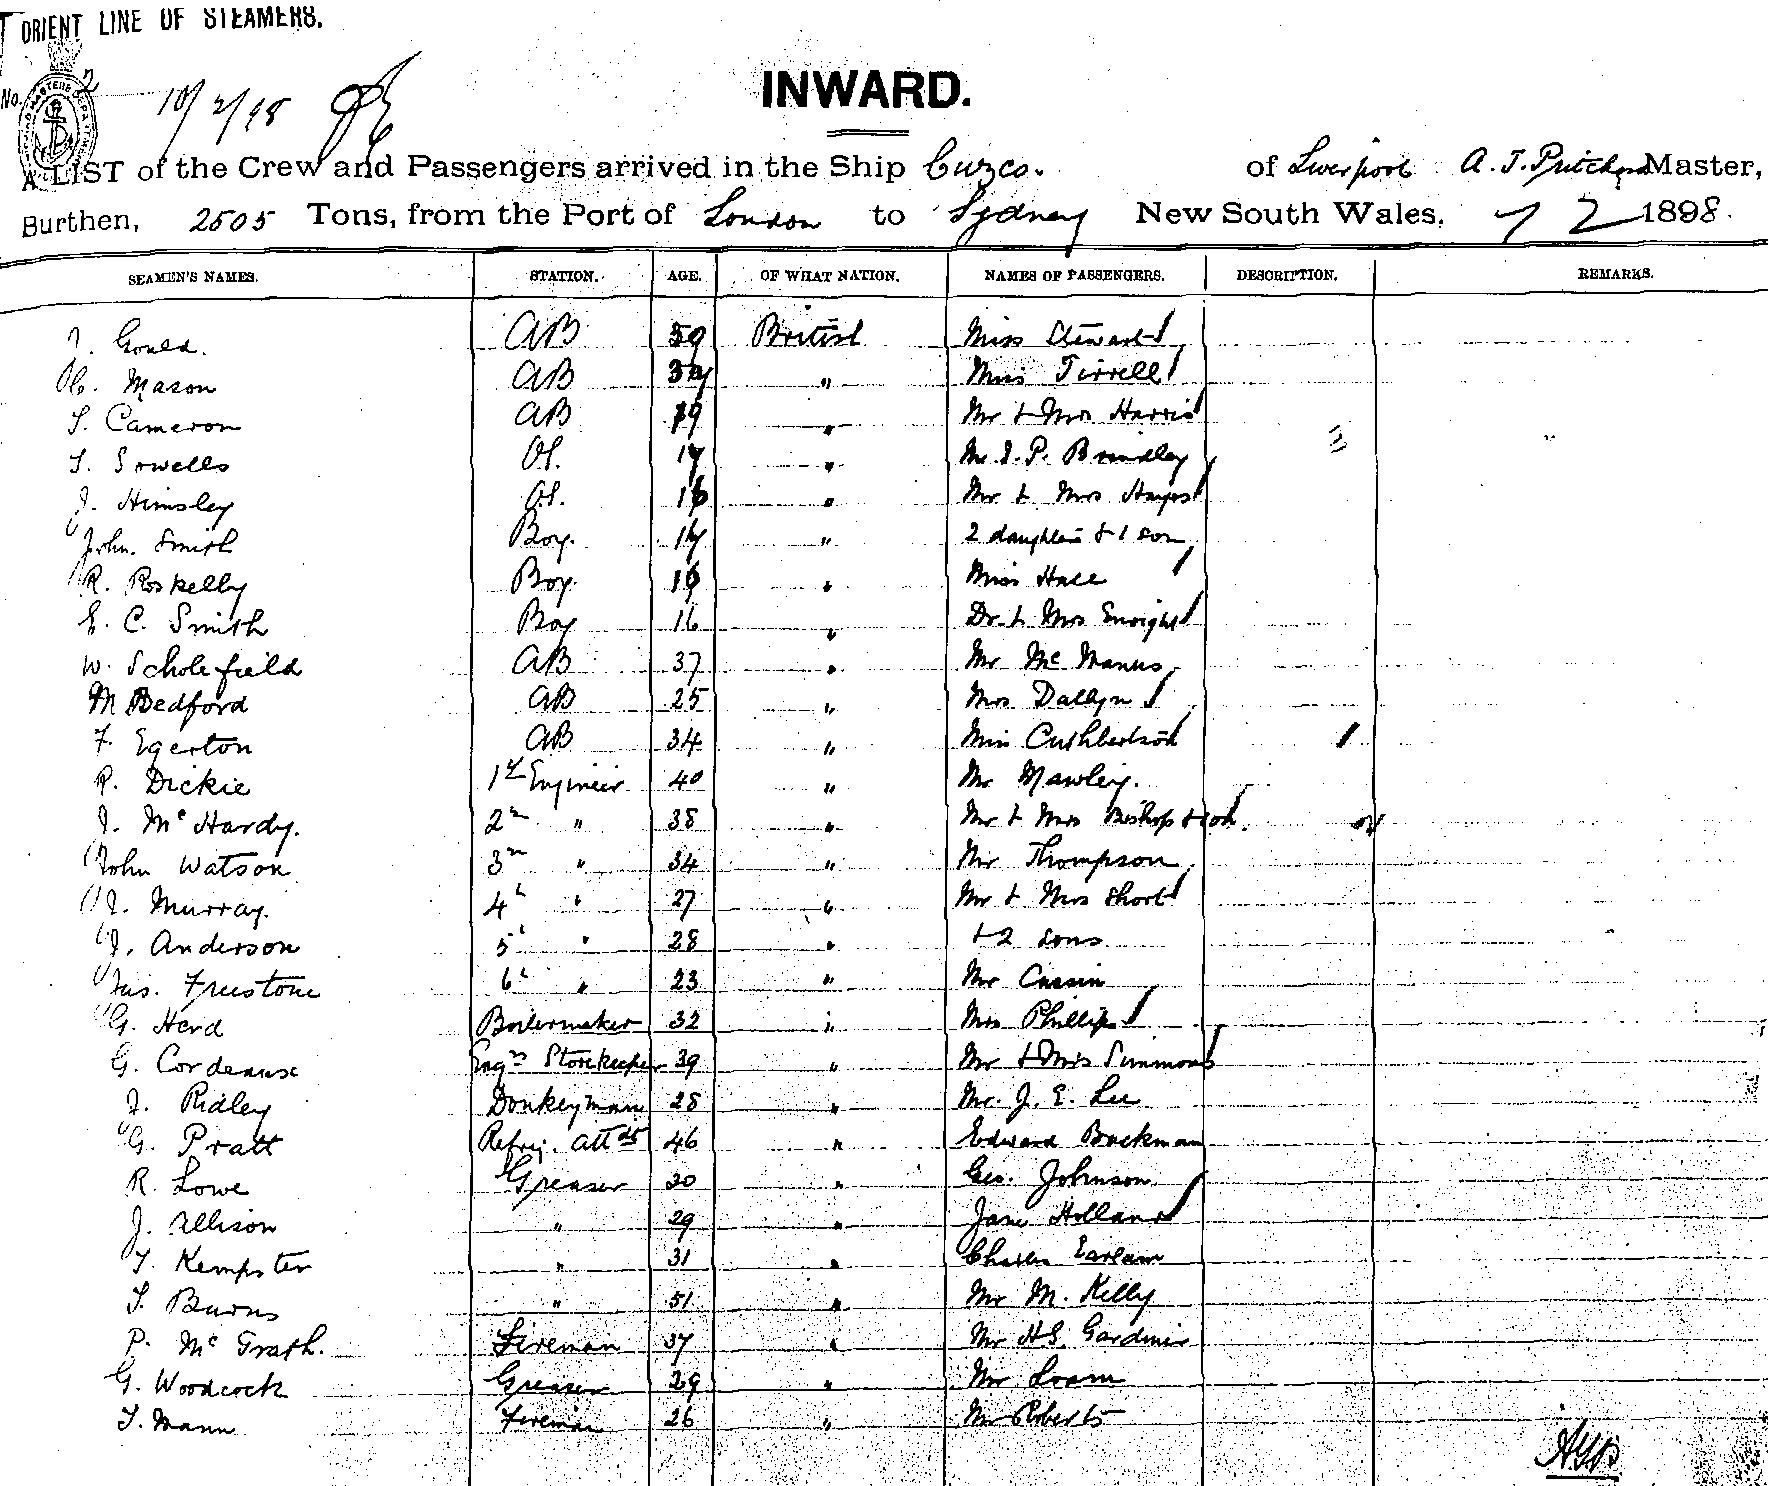 ORIENT LINE OF STEAMERS.
No. 2
10/2/98
INWARD.
A LIST of the Crew and Passengers arrived in the Ship Cuzco. of Liverpool A. J. Pritchard Master,
Burthen, 2505 Tons, from the Port of London to Sydney New South Wales. 7 2 1898.
SEAMEN'S NAMES. STATION. AGE. OF WHAT NATION. NAMES OF PASSENGERS. DESCRIPTION. REMARKS.
Gould. AB 59 British Miss Stewart
Mason AB " Miss Tirrell
Cameron AB 19 " Mr & Mrs Harris
Sowells OS. 17 " Mr. P. Brindley
J. Himsley OS. 16 " Mr & Mrs Hayes
John. Smith Boy. 17 " 2 daughters & 1 son
R. Roskelly Boy. " Miss Hall
E. C. Smith Boy 16 " Dr. & Mrs Enright
W. Scholefield AB 37 " Mr McManus
M Bedford AB 25 " Mrs Dallyn
F. Egerton AB 34 " Miss Cuthbertson
R. Dickie 1st Engineer 40 " Mr Mawley.
J. McHardy. 2nd " 38 " Mr & Mrs Bishop & ch.
John Watson 3rd " 34 " Mr Thompson
J. Murray. 4th " 27 " Mr & Mrs Short
J. Anderson 5th " 28 " + 2 sons
Jas. Freestone 6th " 23 " Mr Cassin
G. Herd Boilermaker 32 " Mrs Phillips
G. Cordeaux Engrs Storekeeper 39 " Mr & Mrs Simmons
J. Ridley Donkeyman 28 " Mr. J. E. Lee
G. Pratt Refrig. Attdt 46 " Edward Bockman
R. Lowe Greaser 30 " Geo. Johnson
J. Allison " 29 " Jane Holland
T. Kempster " 31 " Charles Earlam
T. Burns " 51 " Mr M. Kelly
P. McGrath. Fireman 37 " Mr H.S. Gardiner
G. Woodcock Greaser 29 " Mr Loam
T. Mann Fireman 26 " Mr Roberts